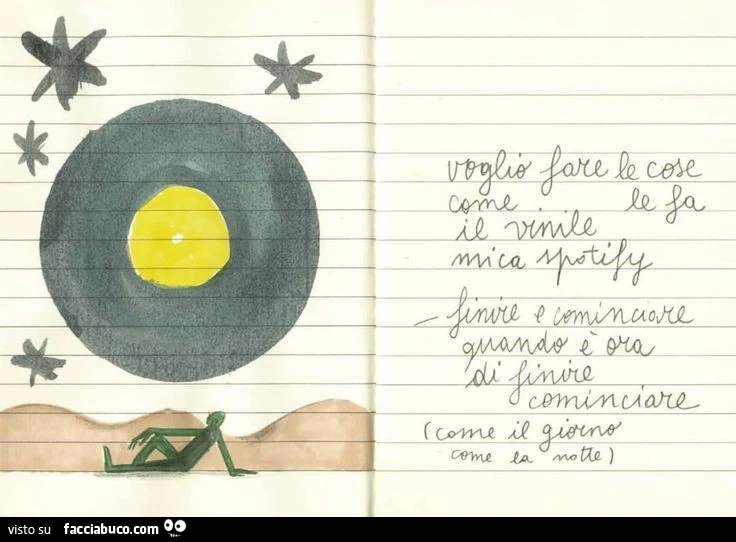 voglio fare le cose
come le fa
il vinile
mica spotify
– finire e cominciare
quando è ora
di finire
cominciare
(come il giorno
come la notte)
visto su facciabuco.com